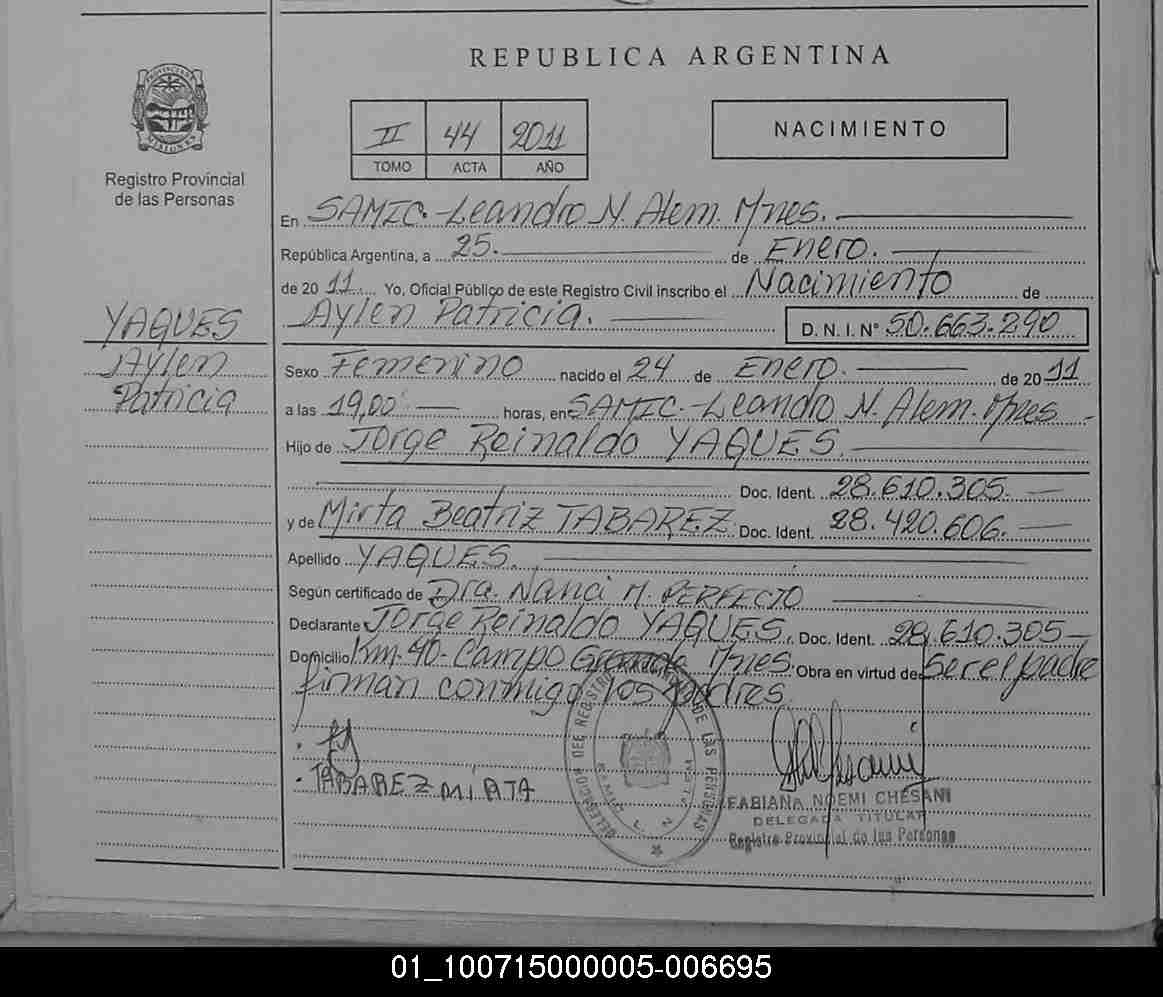 REPUBLICA ARGENTINA
PROVINCIA DE MISIONES
Registro Provincial
de las Personas
II 44 2011
TOMO ACTA AÑO
NACIMIENTO
En SAMIC.-Leandro N. Alem. Mnes.
República Argentina, a 25. de Enero.
de 2011 Yo, Oficial Público de este Registro Civil inscribo el Nacimiento de
Aylen Patricia. D. N. I. Nº 50.663.290
YAQUES
Aylen
Patricia
Sexo Femenino nacido el 24 de Enero. de 2011
a las 19,00 horas, en SAMIC.-Leandro N. Alem. Mnes.
Hijo de Jorge Reinaldo YAQUES.
Doc. Ident. 28.610.305.
y de Mirta Beatriz TABAREZ Doc. Ident. 28.420.606.
Apellido YAQUES.
Según certificado de Dra. Nanci M. PERFECTO
Declarante Jorge Reinaldo YAQUES. Doc. Ident. 28.610.305
Domicilio Km. 40- Campo Grande Mnes. Obra en virtud de Ser el padre
firman conmigo los padres.
TABAREZ MIRTA
DELEGACION DEL REGISTRO PROVINCIAL DE LAS PERSONAS
SAMIC L. N. ALEM
FABIANA NOEMI CHESANI
DELEGADA TITULAR
Registro Provincial de las Personas
01_100715000005-006695